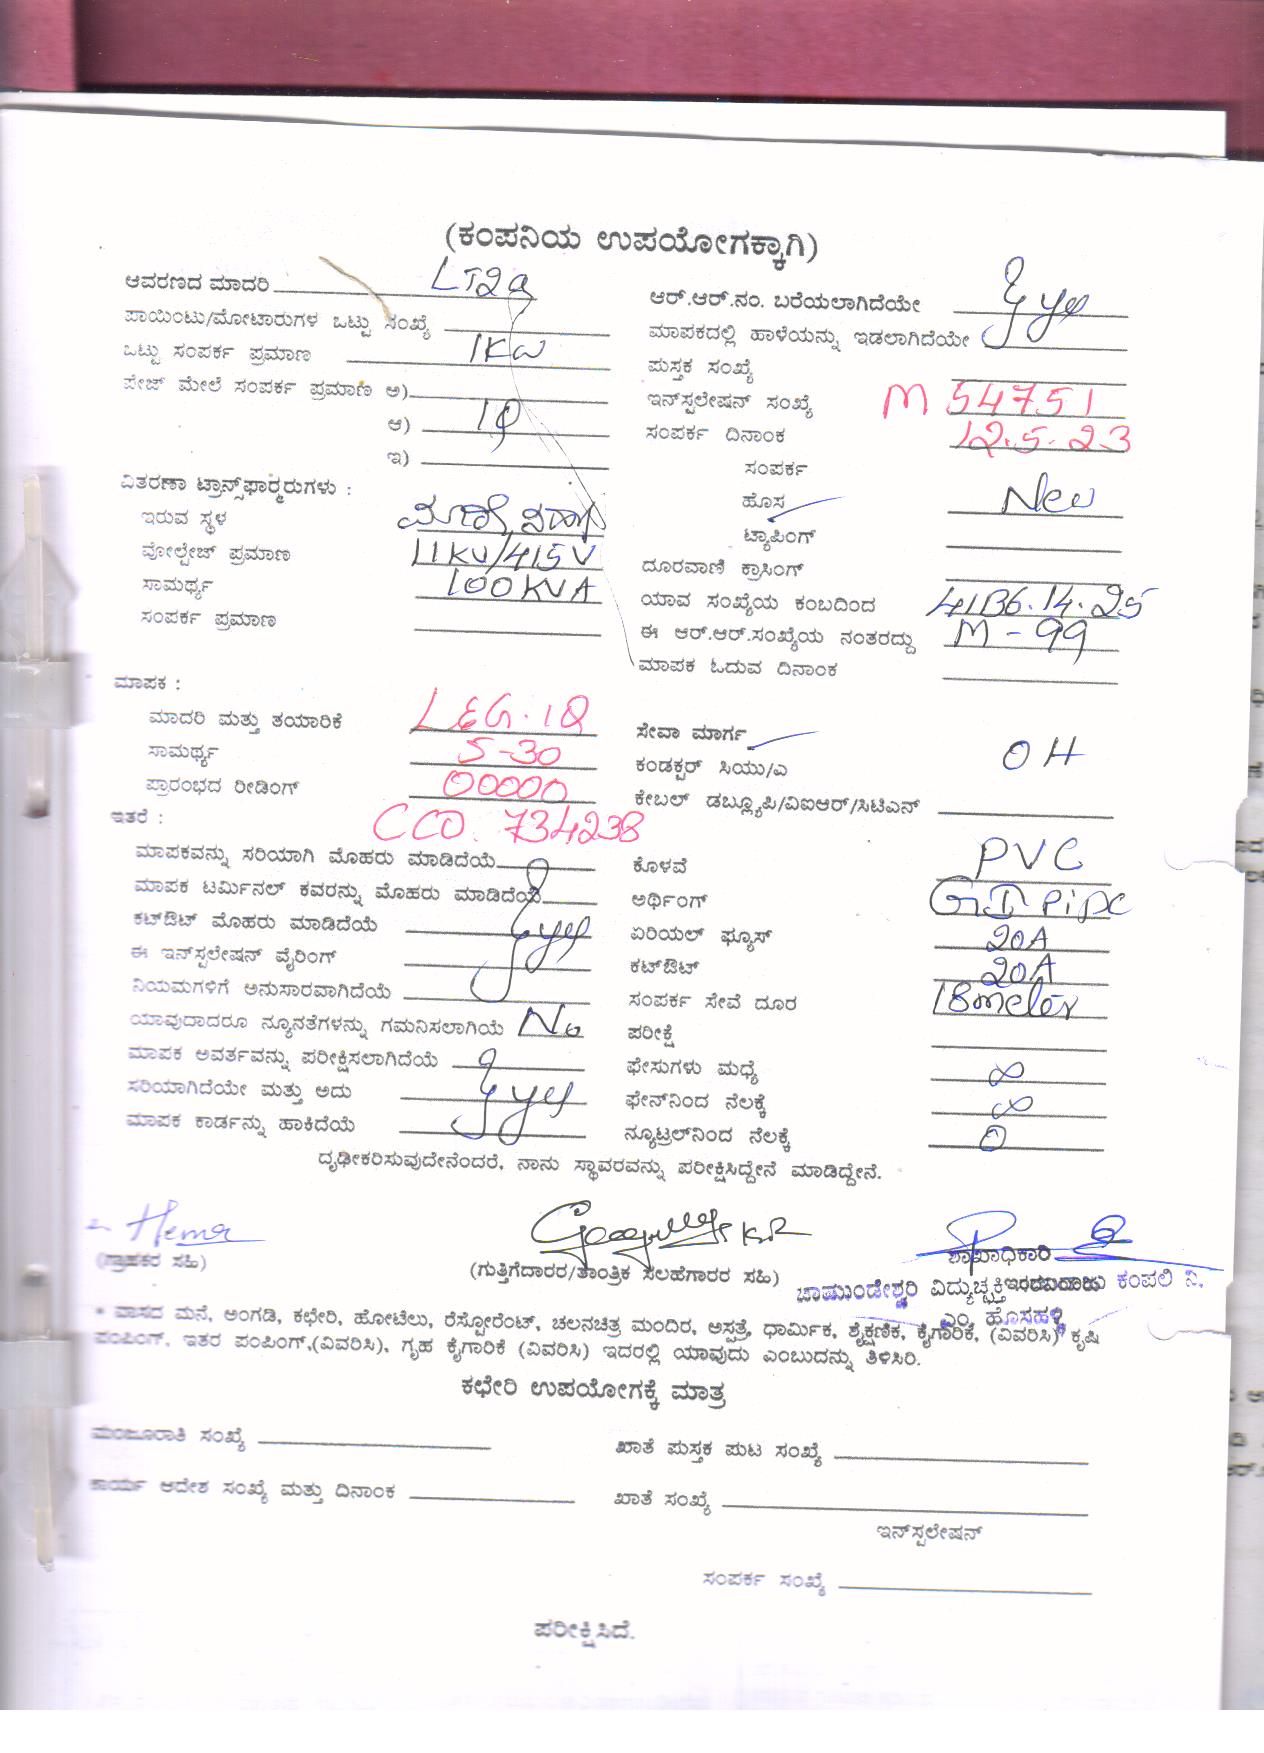 (ಕಂಪನಿಯ ಉಪಯೋಗಕ್ಕಾಗಿ)
ಆವರಣದ ಮಾದರಿ LT2a
ಪಾಯಿಂಟು/ಮೋಟಾರುಗಳ ಒಟ್ಟು ಸಂಖ್ಯೆ
ಒಟ್ಟು ಸಂಪರ್ಕ ಪ್ರಮಾಣ 1KW
ಪೇಜ್ ಮೇಲೆ ಸಂಪರ್ಕ ಪ್ರಮಾಣ ಅ)
ಆ) 1Φ
ಇ)
ವಿತರಣಾ ಟ್ರಾನ್ಸ್‌ಫಾರ್ಮರುಗಳು :
ಇರುವ ಸ್ಥಳ
ವೋಲ್ಟೇಜ್ ಪ್ರಮಾಣ 11KV/415V
ಸಾಮರ್ಥ್ಯ 100KVA
ಸಂಪರ್ಕ ಪ್ರಮಾಣ
ಮಾಪಕ :
ಮಾದರಿ ಮತ್ತು ತಯಾರಿಕೆ L&G. 1Φ
ಸಾಮರ್ಥ್ಯ 5-30
ಪ್ರಾರಂಭದ ರೀಡಿಂಗ್ 00000
ಇತರೆ : CCO. 734238
ಮಾಪಕವನ್ನು ಸರಿಯಾಗಿ ಮೊಹರು ಮಾಡಿದೆಯೆ
ಮಾಪಕ ಟರ್ಮಿನಲ್ ಕವರನ್ನು ಮೊಹರು ಮಾಡಿದೆಯೆ
ಕಟ್‌ಔಟ್ ಮೊಹರು ಮಾಡಿದೆಯೆ yes
ಈ ಇನ್‌ಸ್ಟಲೇಷನ್ ವೈರಿಂಗ್
ನಿಯಮಗಳಿಗೆ ಅನುಸಾರವಾಗಿದೆಯೆ
ಯಾವುದಾದರೂ ನ್ಯೂನತೆಗಳನ್ನು ಗಮನಿಸಲಾಗಿಯೆ No
ಮಾಪಕ ಅವರ್ತವನ್ನು ಪರೀಕ್ಷಿಸಲಾಗಿದೆಯೆ
ಸರಿಯಾಗಿದೆಯೇ ಮತ್ತು ಅದು yes
ಮಾಪಕ ಕಾರ್ಡನ್ನು ಹಾಕಿದೆಯೆ
ಆರ್.ಆರ್.ನಂ. ಬರೆಯಲಾಗಿದೆಯೇ yes
ಮಾಪಕದಲ್ಲಿ ಹಾಳೆಯನ್ನು ಇಡಲಾಗಿದೆಯೇ
ಪುಸ್ತಕ ಸಂಖ್ಯೆ
ಇನ್‌ಸ್ಟಲೇಷನ್ ಸಂಖ್ಯೆ M 54751
ಸಂಪರ್ಕ ದಿನಾಂಕ 12.5.23
ಸಂಪರ್ಕ
ಹೊಸ New
ಟ್ಯಾಪಿಂಗ್
ದೂರವಾಣಿ ಕ್ರಾಸಿಂಗ್
ಯಾವ ಸಂಖ್ಯೆಯ ಕಂಬದಿಂದ 41B6.14.25
ಈ ಆರ್.ಆರ್.ಸಂಖ್ಯೆಯ ನಂತರದ್ದು M-99
ಮಾಪಕ ಓದುವ ದಿನಾಂಕ
ಸೇವಾ ಮಾರ್ಗ
ಕಂಡಕ್ಟರ್ ಸಿಯು/ಎ OH
ಕೇಬಲ್ ಡಬ್ಲ್ಯೂಪಿ/ವಿಐಆರ್/ಸಿಟಿಎನ್
ಕೊಳವೆ PVC
ಅರ್ಥಿಂಗ್ GI Pipe
ಏರಿಯಲ್ ಫ್ಯೂಸ್ 20A
ಕಟ್‌ಔಟ್ 20A
ಸಂಪರ್ಕ ಸೇವೆ ದೂರ 18meter
ಪರೀಕ್ಷೆ
ಫೇಸುಗಳು ಮಧ್ಯೆ ∞
ಫೇನ್‌ನಿಂದ ನೆಲಕ್ಕೆ ∞
ನ್ಯೂಟ್ರಲ್‌ನಿಂದ ನೆಲಕ್ಕೆ 0
ದೃಢೀಕರಿಸುವುದೇನೆಂದರೆ, ನಾನು ಸ್ಥಾವರವನ್ನು ಪರೀಕ್ಷಿಸಿದ್ದೇನೆ ಮಾಡಿದ್ದೇನೆ.
Hema
(ಗ್ರಾಹಕರ ಸಹಿ)
(ಗುತ್ತಿಗೆದಾರರ/ತಾಂತ್ರಿಕ ಸಲಹೆಗಾರರ ಸಹಿ)
ಶಾಖಾಧಿಕಾರಿ
ಚಾಮುಂಡೇಶ್ವರಿ ವಿದ್ಯುಚ್ಛಕ್ತಿ ಕಂಪಲಿ ನಿ.
ಎಂ. ಹೊಸಹಳ್ಳಿ
* ವಾಸದ ಮನೆ, ಅಂಗಡಿ, ಕಛೇರಿ, ಹೋಟೆಲು, ರೆಸ್ಟೋರೆಂಟ್, ಚಲನಚಿತ್ರ ಮಂದಿರ, ಅಸ್ಪತ್ರೆ, ಧಾರ್ಮಿಕ, ಶೈಕ್ಷಣಿಕ, ಕೈಗಾರಿಕೆ, (ವಿವರಿಸಿ) ಕೃಷಿ
ಪಂಪಿಂಗ್, ಇತರ ಪಂಪಿಂಗ್,(ವಿವರಿಸಿ), ಗೃಹ ಕೈಗಾರಿಕೆ (ವಿವರಿಸಿ) ಇದರಲ್ಲಿ ಯಾವುದು ಎಂಬುದನ್ನು ತಿಳಿಸಿರಿ.
ಕಛೇರಿ ಉಪಯೋಗಕ್ಕೆ ಮಾತ್ರ
ಮಂಜೂರಾತಿ ಸಂಖ್ಯೆ
ಖಾತೆ ಪುಸ್ತಕ ಪುಟ ಸಂಖ್ಯೆ
ಕಾರ್ಯ ಆದೇಶ ಸಂಖ್ಯೆ ಮತ್ತು ದಿನಾಂಕ
ಖಾತೆ ಸಂಖ್ಯೆ
ಇನ್‌ಸ್ಟಲೇಷನ್
ಸಂಪರ್ಕ ಸಂಖ್ಯೆ
ಪರೀಕ್ಷಿಸಿದೆ.